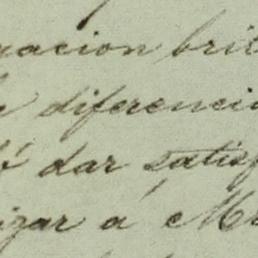 racion brit
diferenci
dar satisf
izar á Mr